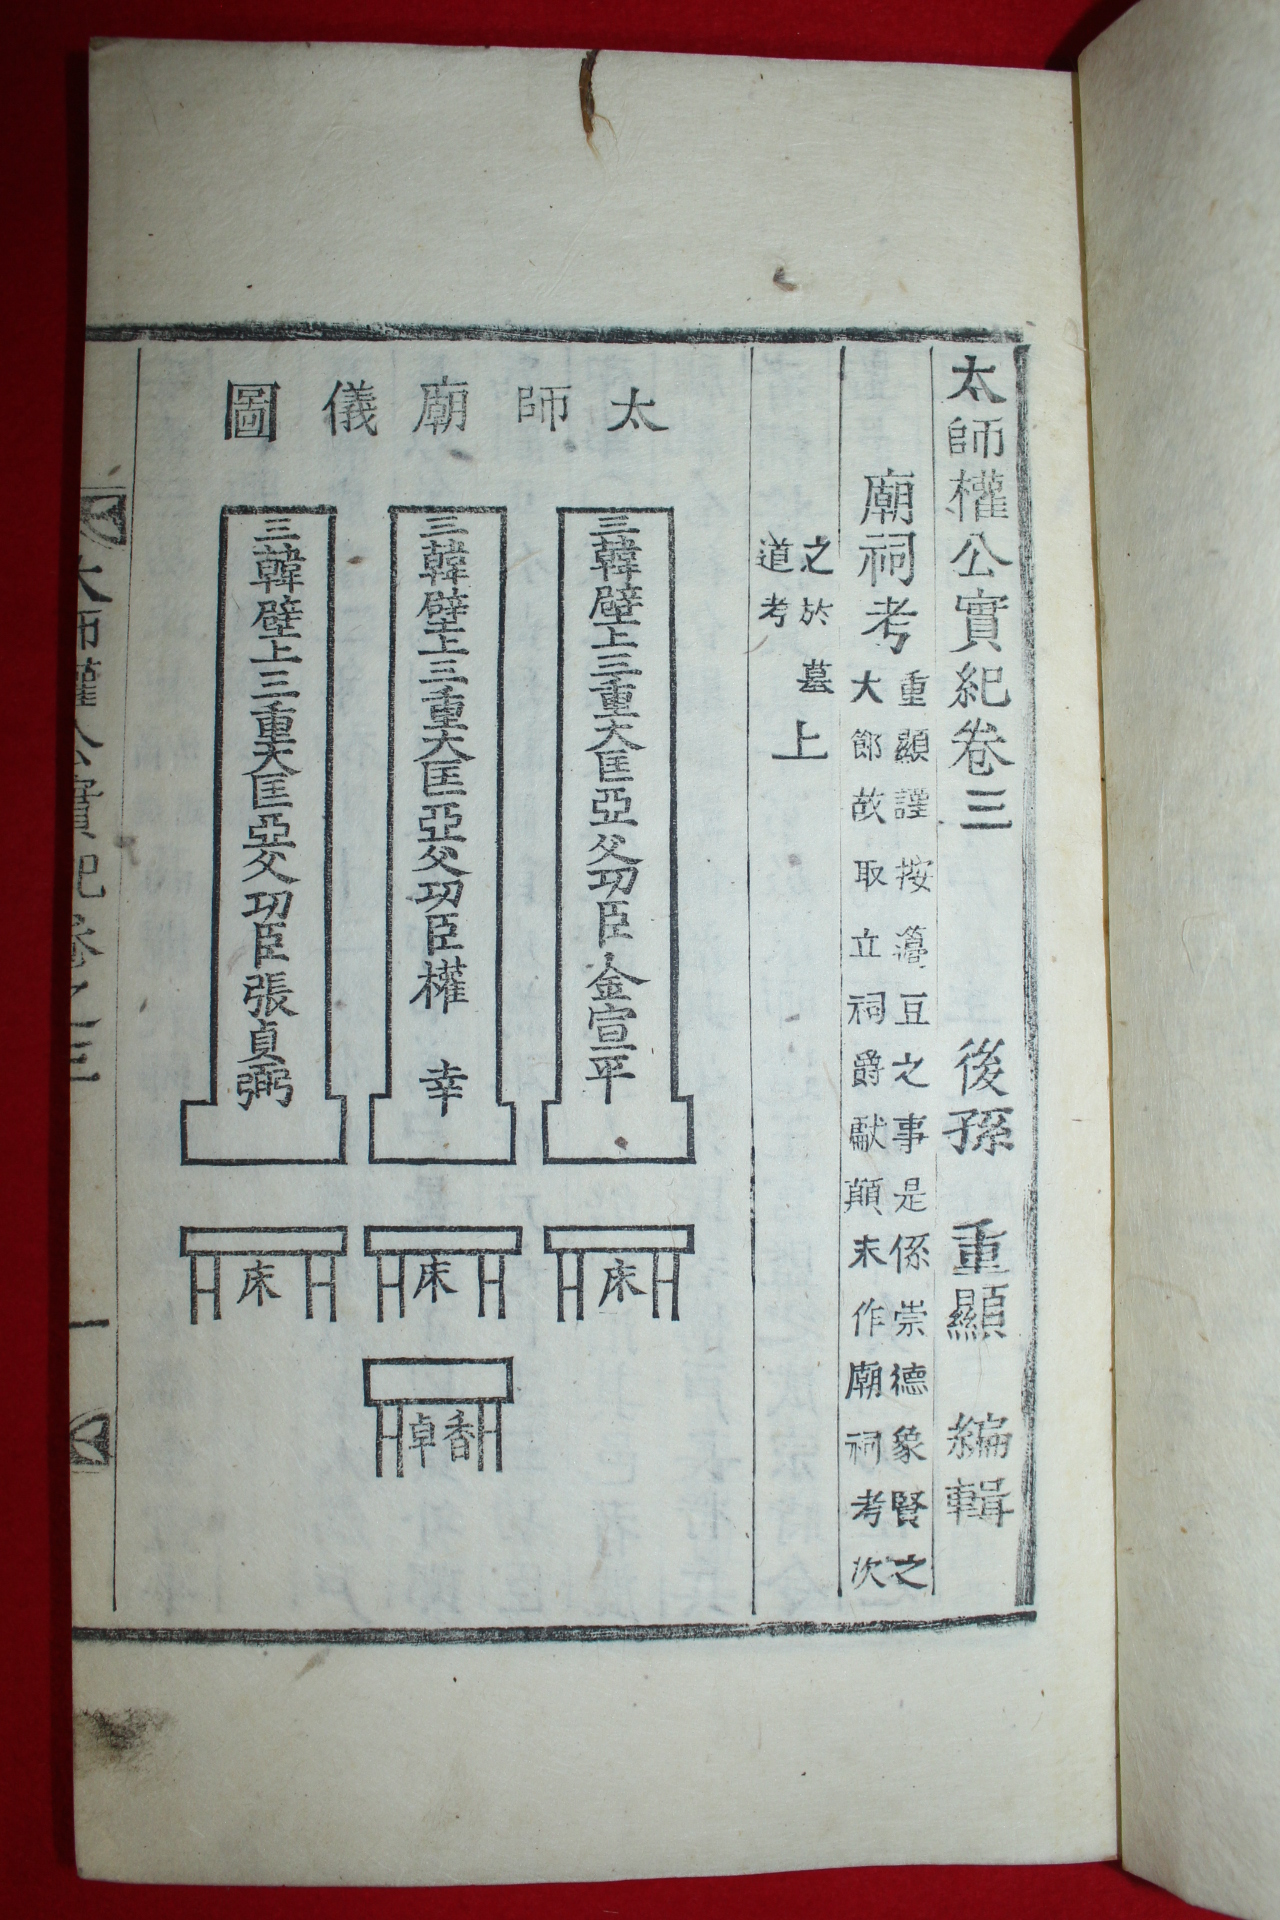 太師權公實紀卷三
後孫 重顯 編輯
廟祠考
重顯謹按籩豆之事是係崇德象賢之
大節故取立祠爵獻顛末作廟祠考次
之於墓
道考上
太師廟儀圖
三韓壁上三重大匡亞父功臣金宣平
三韓壁上三重大匡亞父功臣權 幸
三韓壁上三重大匡亞父功臣張貞弼
床
床
床
香卓
太師權公實紀卷之三
一